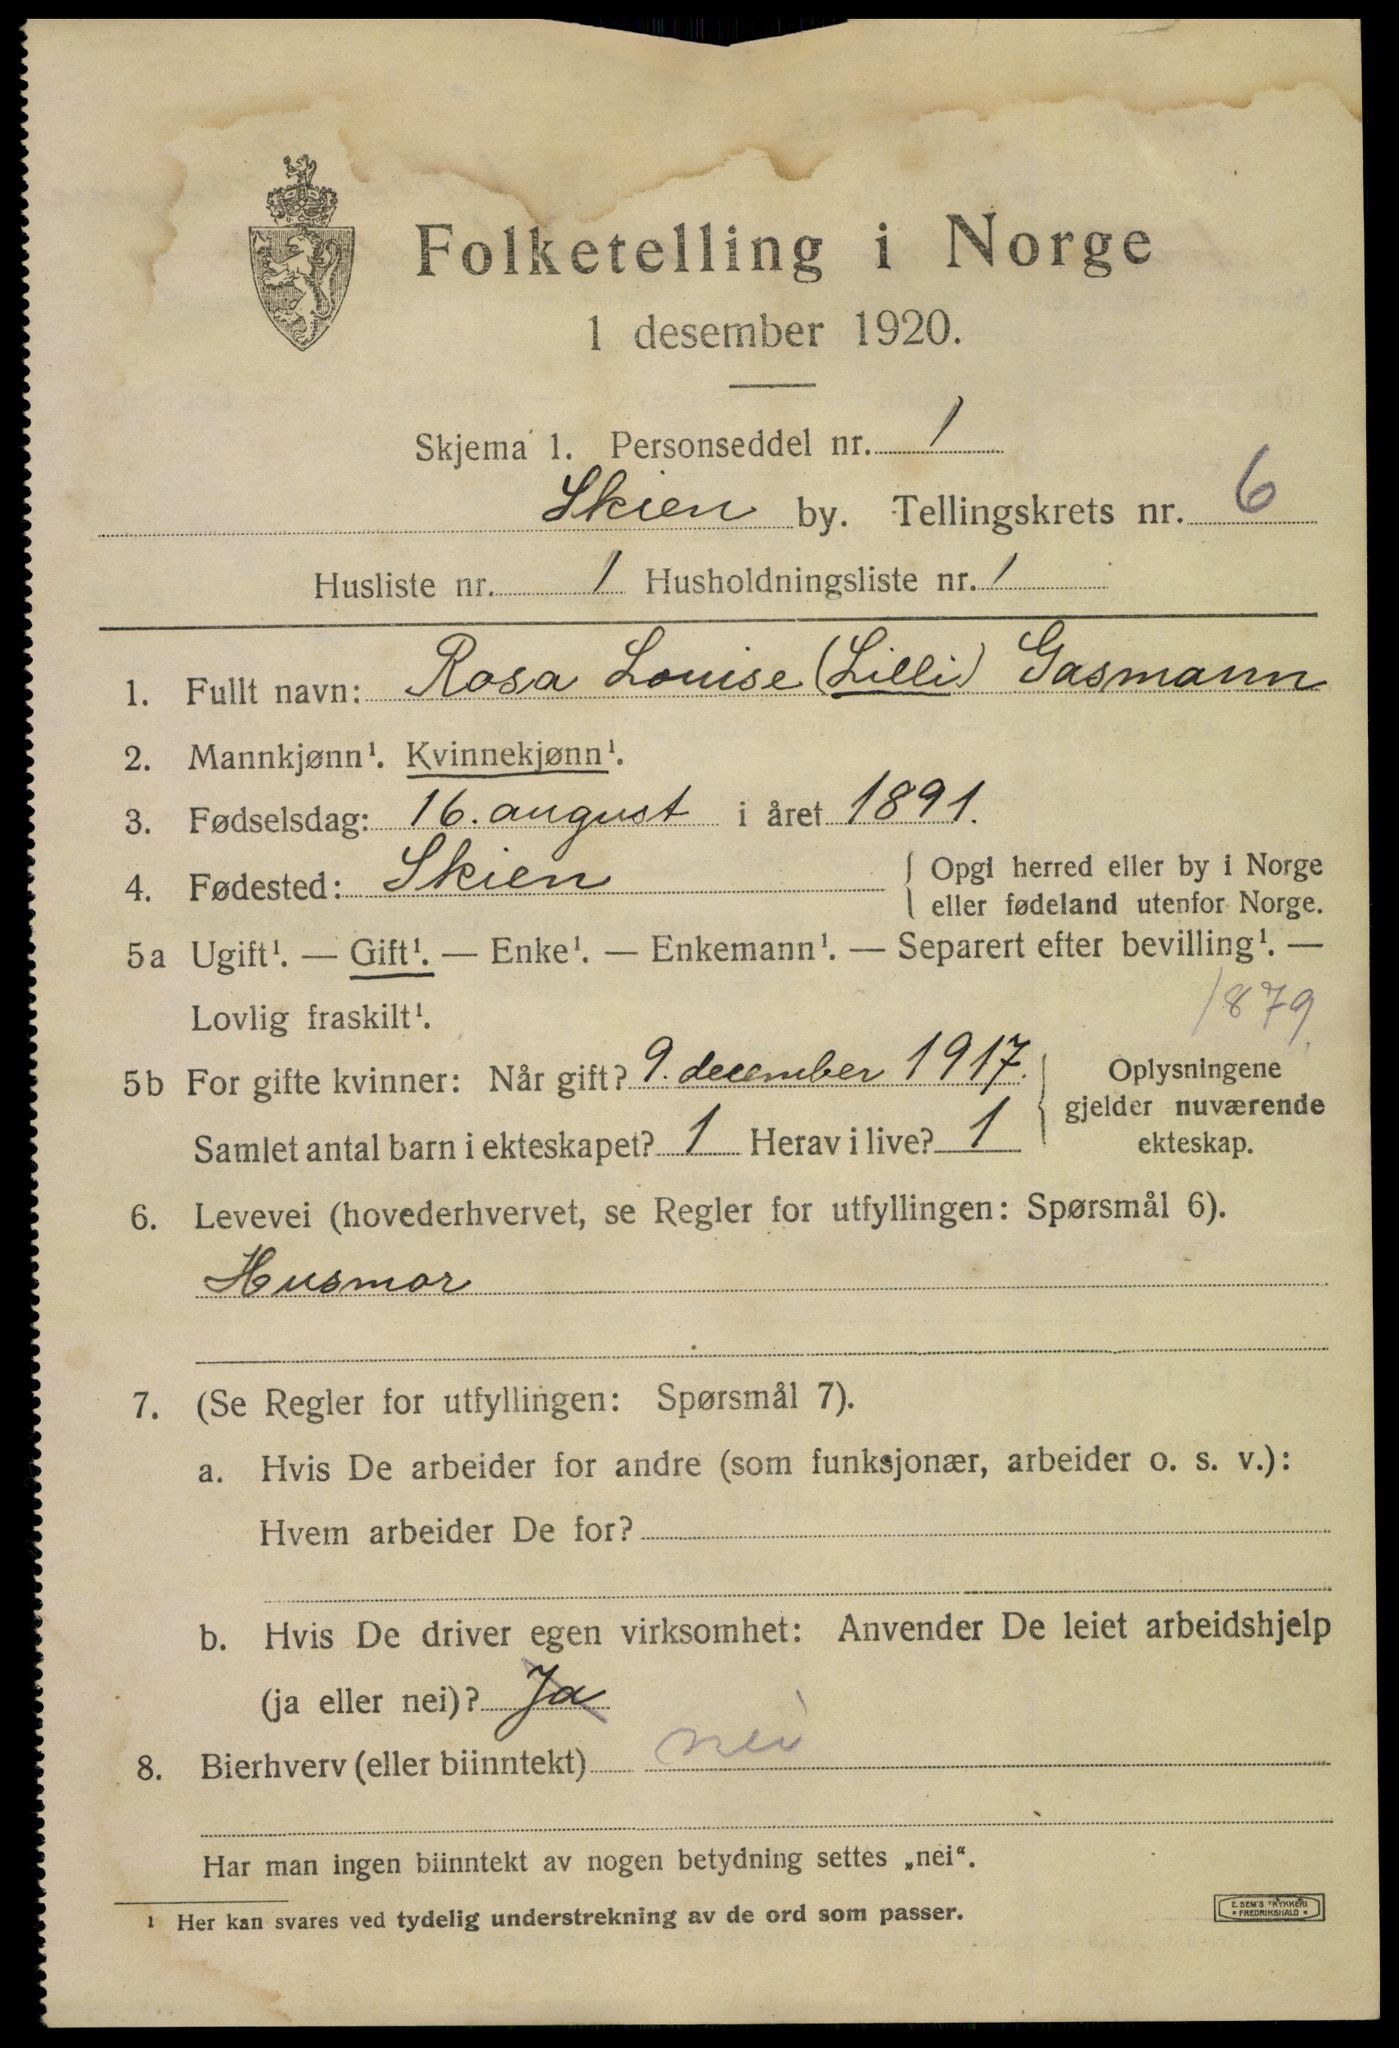 Folketelling i Norge
1 desember 1920.
Skjema 1. Personseddel nr. 1
Skien by. Tellingskrets nr. 6
Husliste nr. 1 Husholdningsliste nr. 1
1. Fullt navn: Rosa Louise (Lilli) Gasmann
2. Mannkjønn¹. Kvinnekjønn¹.
3. Fødselsdag: 16. august i året 1891.
4. Fødested: Skien { Opgi herred eller by i Norge
eller fødeland utenfor Norge.
5a Ugift¹. — Gift¹. — Enke¹. — Enkemann¹. — Separert efter bevilling¹. —
Lovlig fraskilt¹. 1879
5b For gifte kvinner: Når gift? 9. december 1917. { Oplysningene
gjelder nuværende
ekteskap.
Samlet antal barn i ekteskapet? 1 Herav i live? 1
6. Levevei (hovederhvervet, se Regler for utfyllingen: Spørsmål 6).
Husmor
7. (Se Regler for utfyllingen: Spørsmål 7).
a. Hvis De arbeider for andre (som funksjonær, arbeider o. s. v.):
Hvem arbeider De for?
b. Hvis De driver egen virksomhet: Anvender De leiet arbeidshjelp
(ja eller nei)? Ja
8. Bierhverv (eller biinntekt) nei
Har man ingen biinntekt av nogen betydning settes „nei“.
¹ Her kan svares ved tydelig understrekning av de ord som passer.
E. SEM'S TRYKKERI
* FREDRIKSHALD *